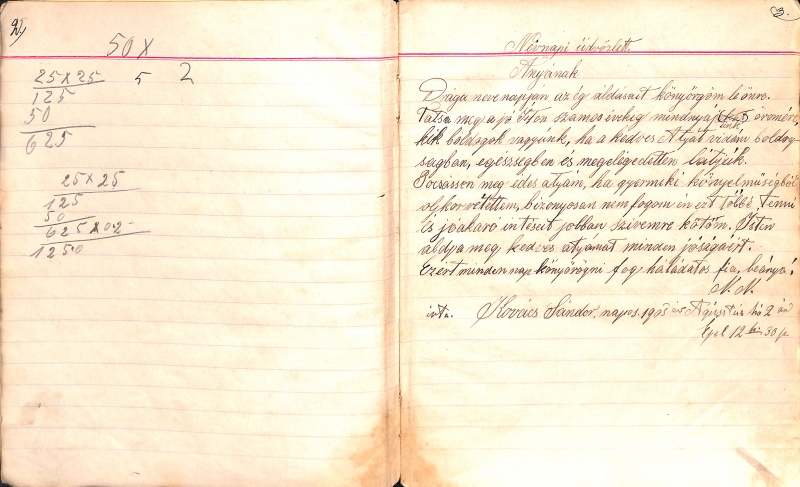 50 x
25 x 25 5 2
125
50
625
25 x 25
125
50
625 x 02
1250
3.
Névnapi üdvözlet.
Anyának
Drága neve napján az ég áldásait könyörgöm le önre.
Tatsa meg a jó Isten számos évekig mindnyajunk örömére,
kik boldogok vagyunk, ha a kedves Atyát vidám boldog-
ságban, egészségben és megelégedetten látjuk.
Bocsásson meg édes atyám, ha gyermeki könyelműségből
oljkor vétettem, bizonyosan nem fogom én ezt többé tenni
és jóakaró intéseit jobban szivemre kötöm. Isten
áldja meg kedves atyámat minden jóságáért.
Ezért minden nap könyörögni fog háládatos fia,
N. N.
irta. Kovács Sándor, 19 év Agusztus hó 2 án
Éjel 12 30 p